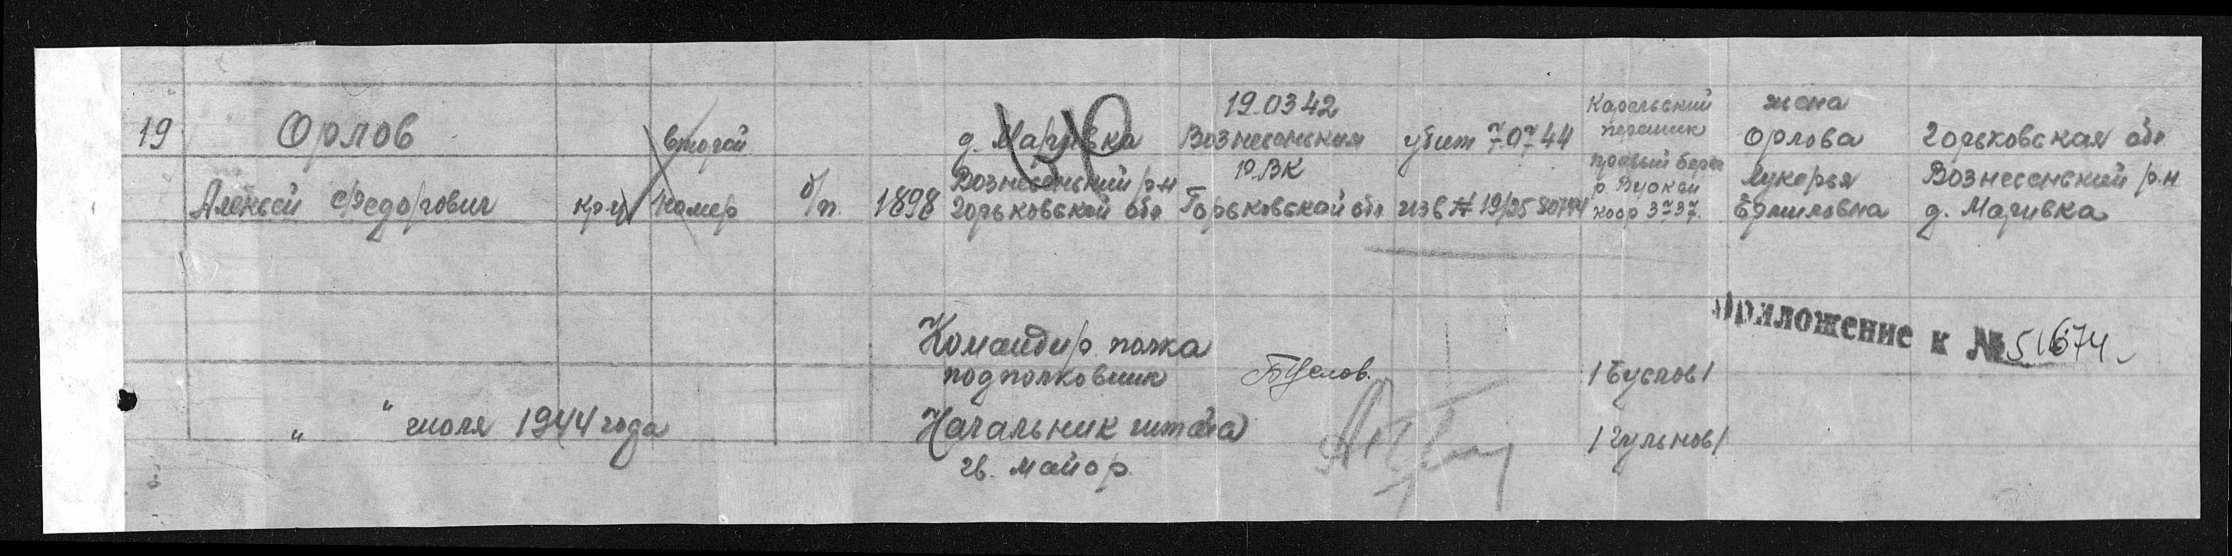 19
Орлов
Алексей Федорович
кр-ц
второй
номер
б/п.
1898
д. Маривка
Вознесенский р-н
Горьковской обл
19.03.42
Вознесенския
РВК
Горьковской обл.
убит 7.07.44
изв № 19/25
Карельский
перешик
правый берег
р. Вуокси
коор 3737.
жена
Орлова
Лукерья
Ермиловна
Горьковская обл
Вознесенский р-н
д. Маривка
Приложение к № 51674
Командир полка
подполковник
Буслов.
/Буслов/
" " июля 1944 года
Начальник штаба
гв. майор
/Гульнов/